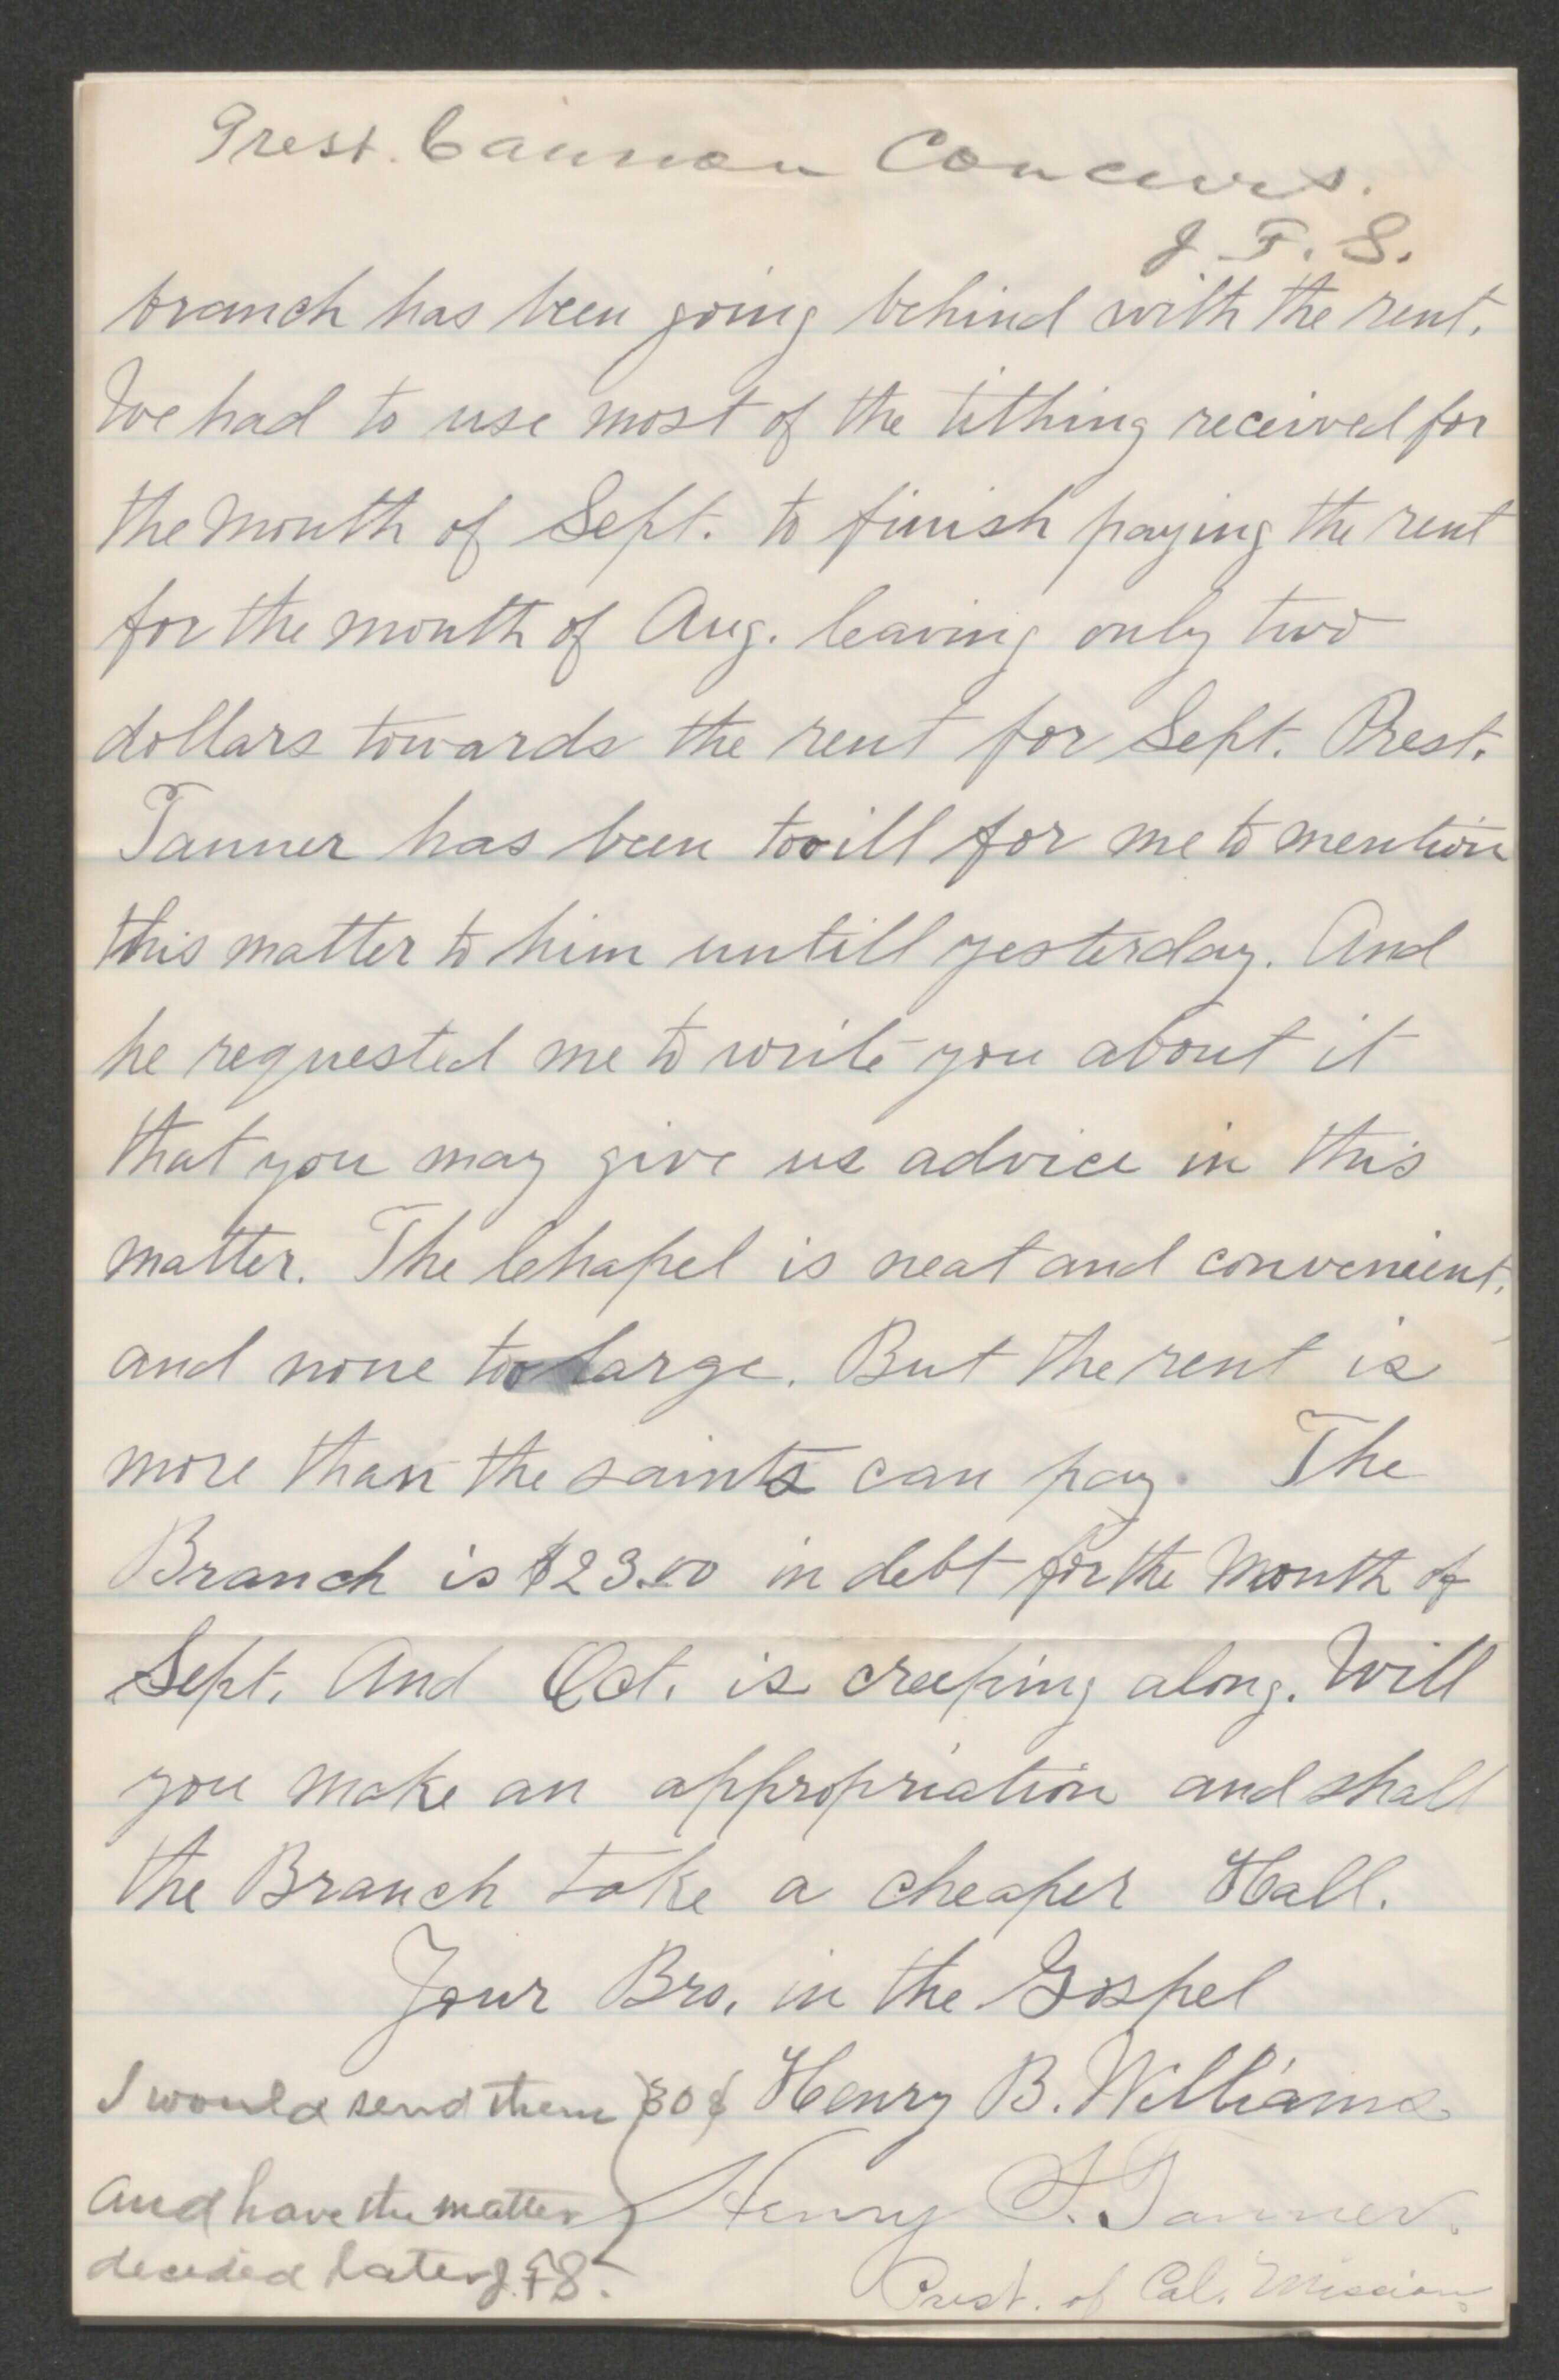 Prest. Cannon Concurs.
J. F. S.
branch has been going behind with the rent.
We had to use most of the tithing received for
the month of Sept. to finish paying the rent
for the month of Aug. leaving only two
dollars towards the rent for Sept. Prest.
Tanner has been too ill for me to mention
this matter to him untill yesterday. And
he requested me to write you about it
that you may give us advice in this
matter. The Chapel is neat and convenient,
and none too large. But the rent is
more than the saints can pay. The
Branch is $23.00 in debt for the month of
Sept. And Oct. is creeping along. Will
you make an appropriation and shall
the Branch take a cheaper Hall.
Your Bro. in the Gospel
Henry B. Williams
Henry S. Tanner.
Prest. of Cal. Mission.
I would send them
and have the matter
decided later J. F. S.